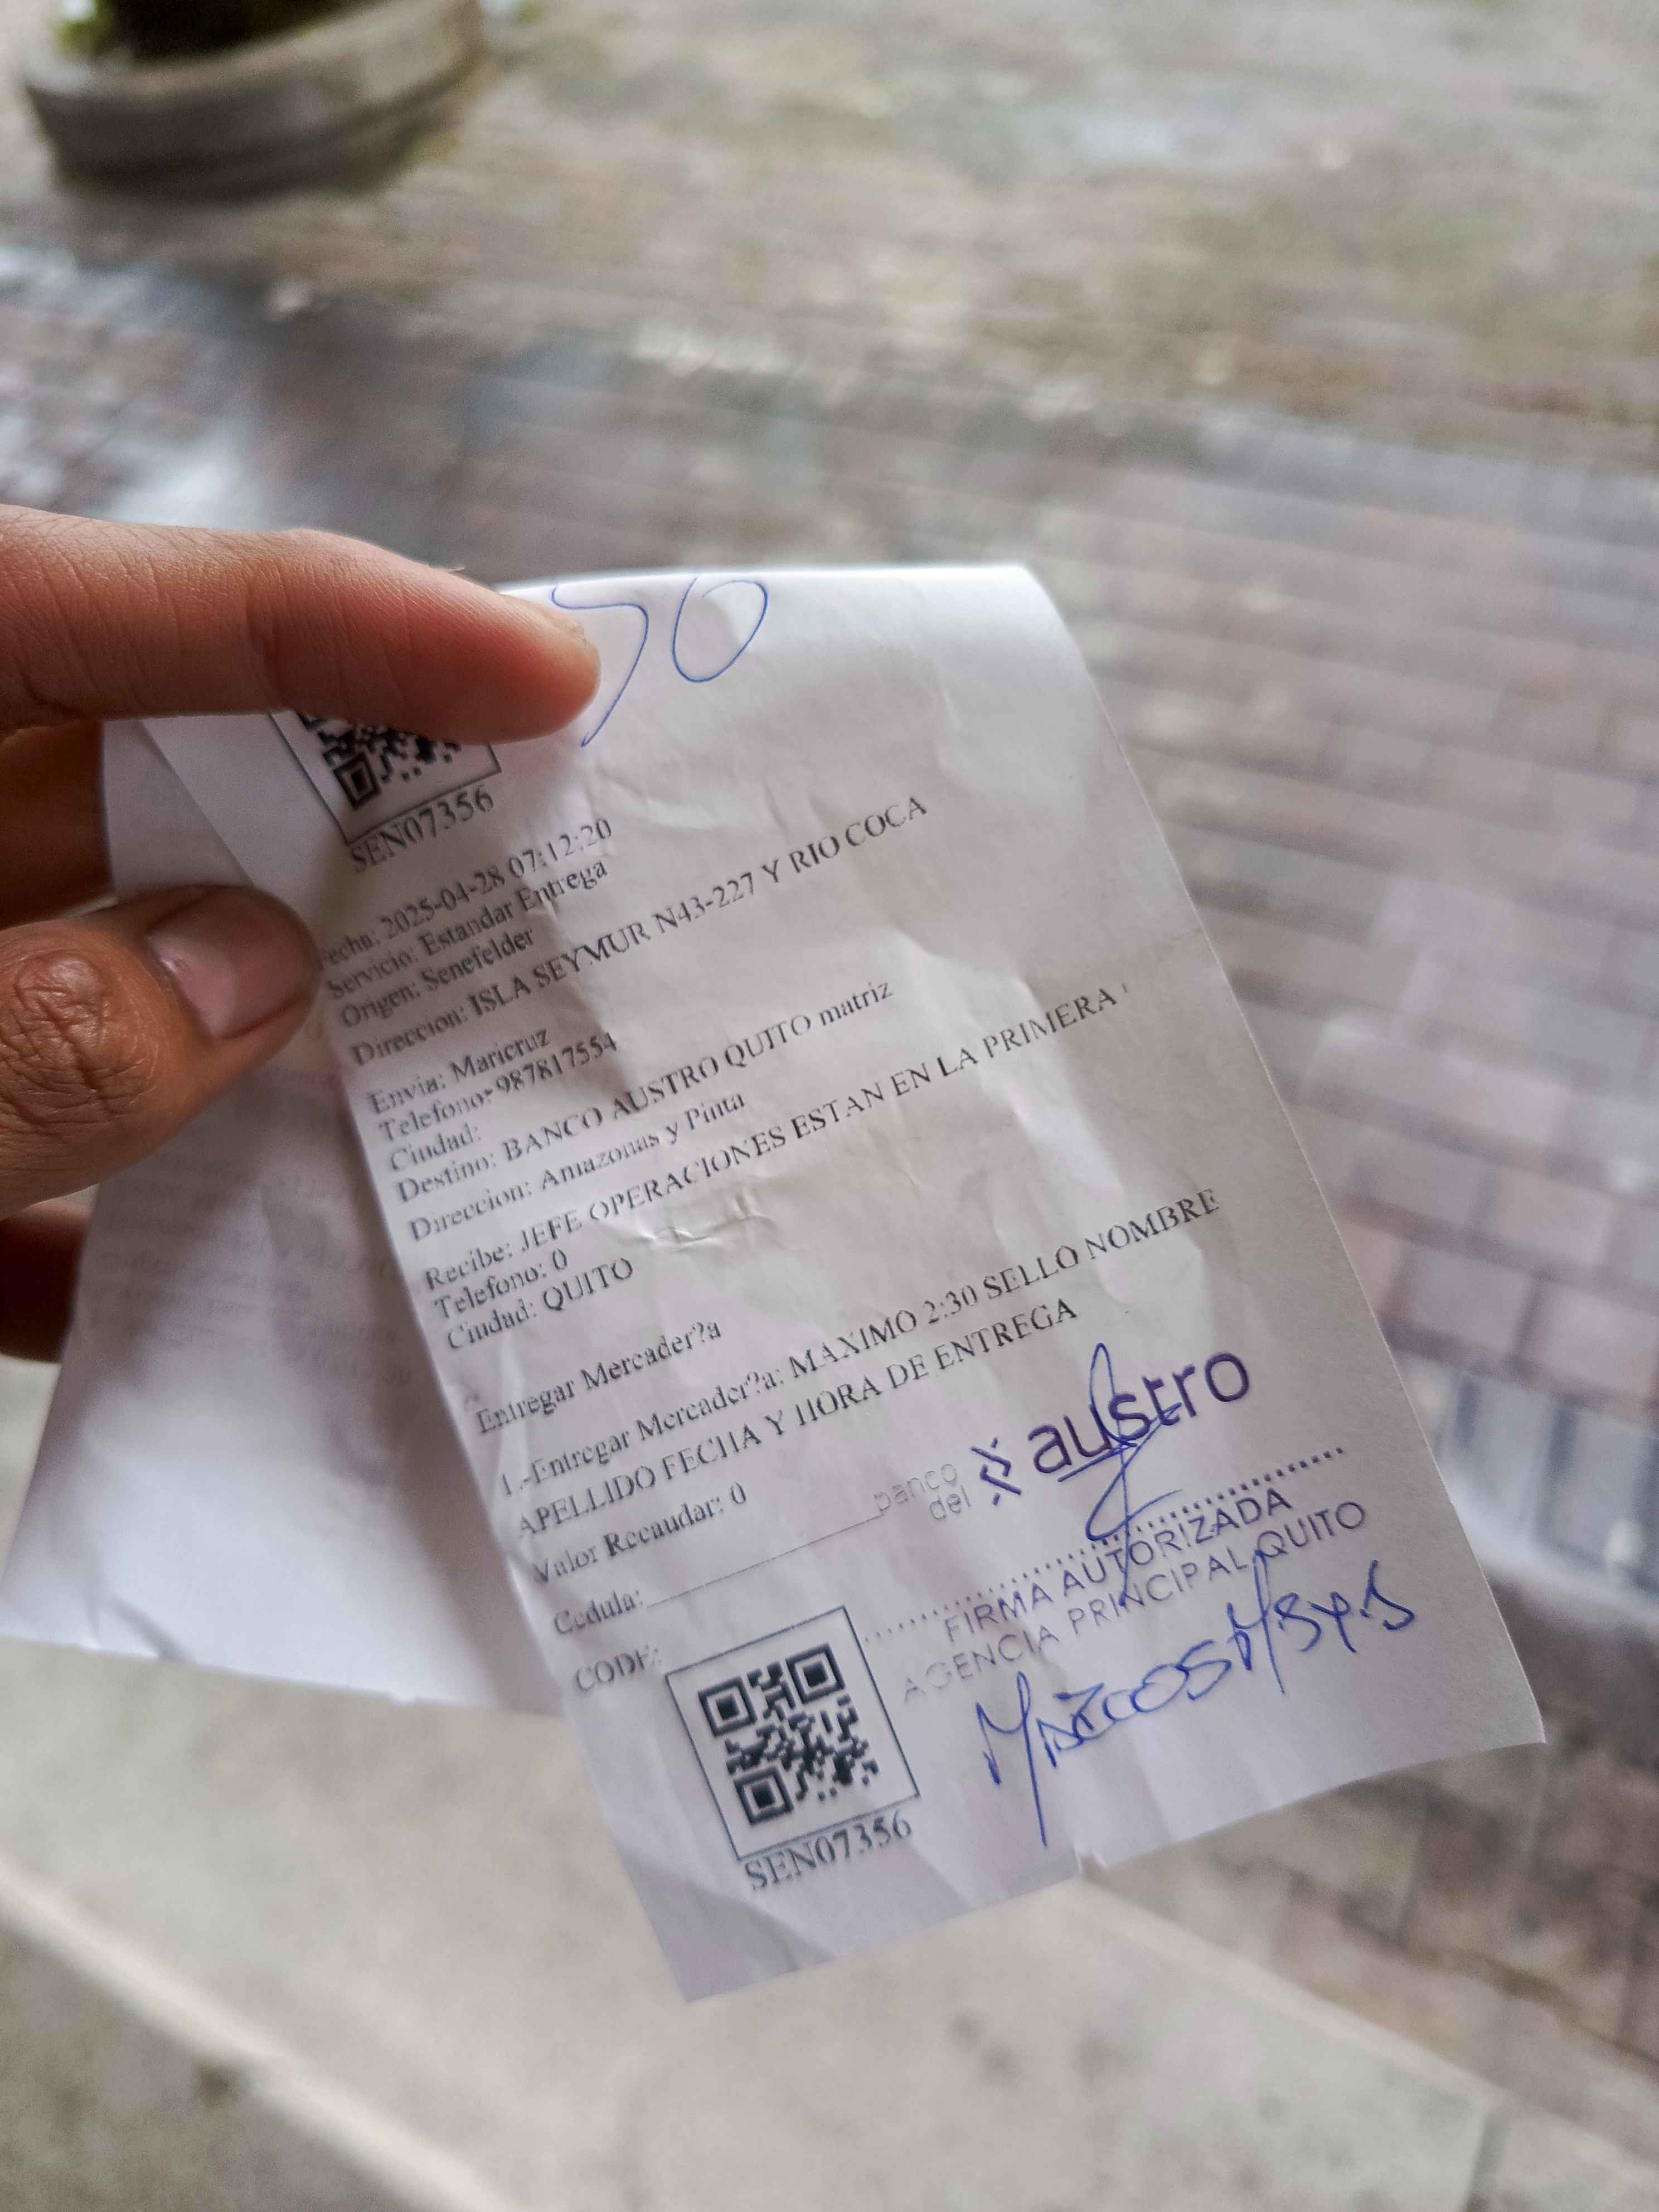 50
SEN07356
Fecha: 2025-04-28 07:12:20
Servicio: Estandar Entrega
Origen: Senefelder
Direccion: ISLA SEYMUR N43-227 Y RIO COCA
Envia: Maricruz
Telefono: 987817554
Ciudad:
Destino: BANCO AUSTRO QUITO matriz
Direccion: Amazonas y Pinta
Recibe: JEFE OPERACIONES ESTAN EN LA PRIMERA
Telefono: 0
Ciudad: QUITO
Entregar Mercader?a
1.-Entregar Mercader?a: MAXIMO 2:30 SELLO NOMBRE
APELLIDO FECHA Y HORA DE ENTREGA
Valor Recaudar: 0
banco del austro
Cedula:
FIRMA AUTORIZADA
AGENCIA PRINCIPAL QUITO
CODE:
SEN07356